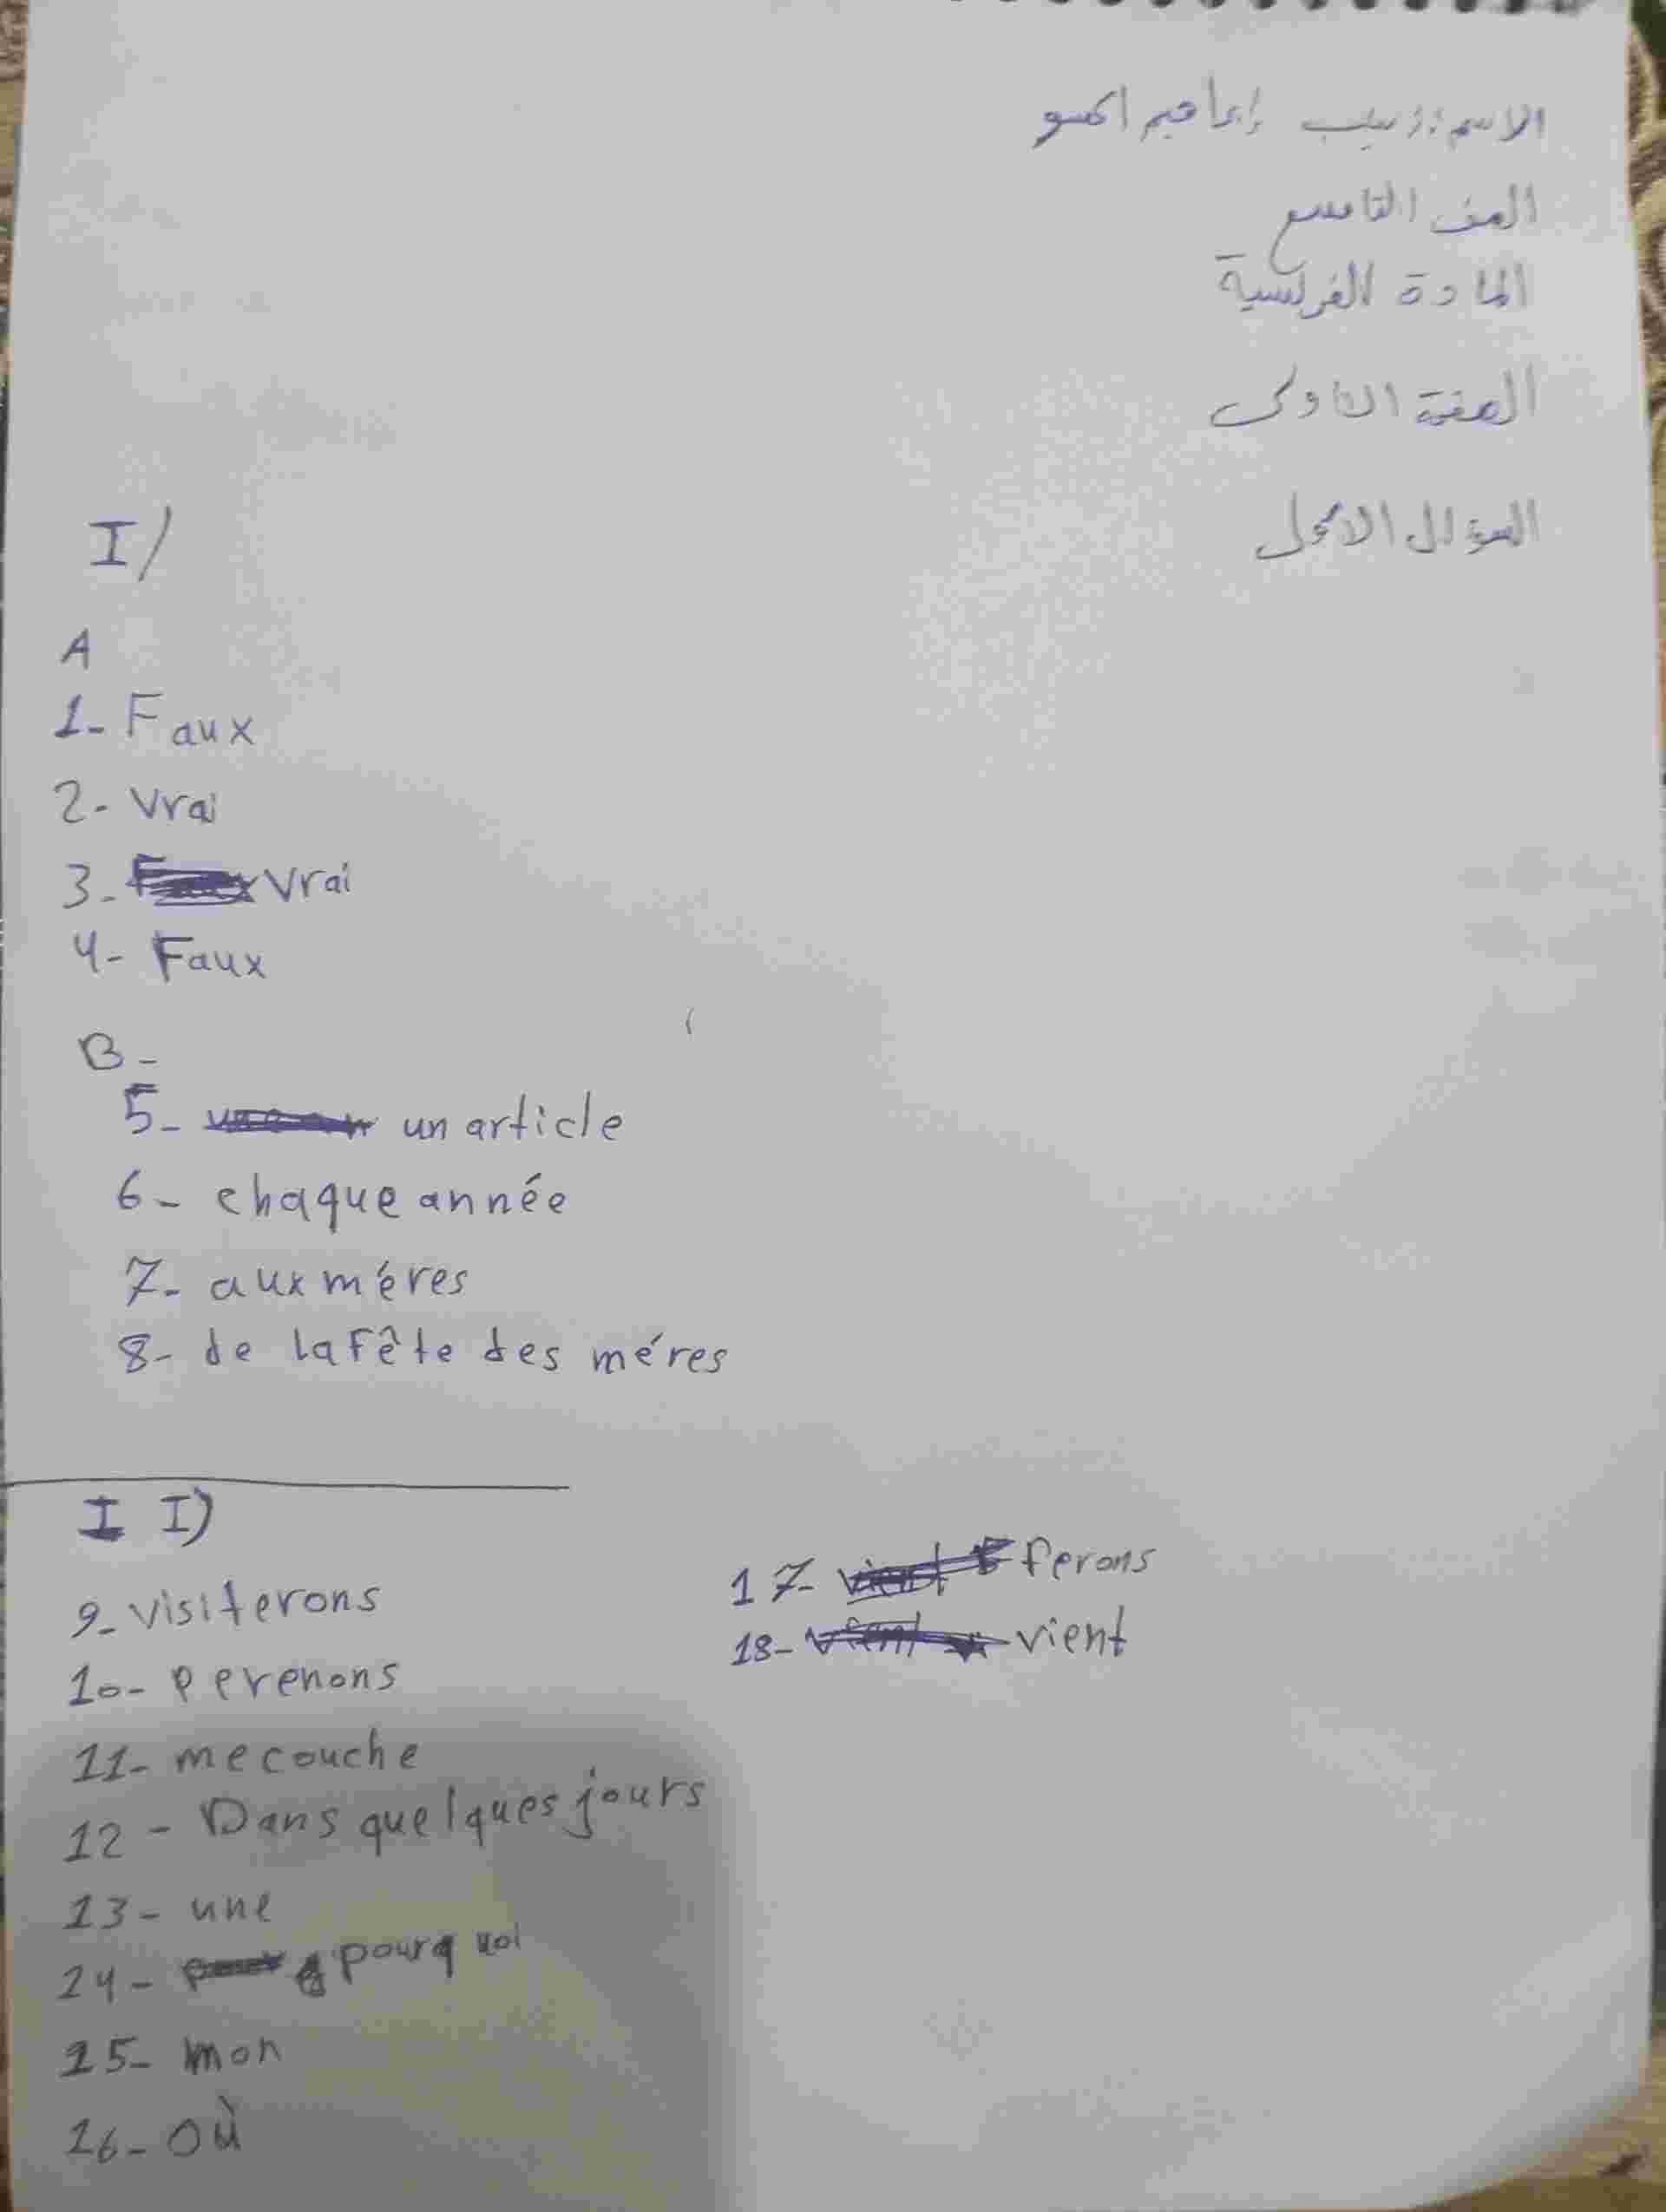 الاسم: زينب إبراهيم الحسو
الصف التاسع
المادة الفرنسية
الصفحة الاولى
السؤال الاول
I/
A
1- Faux
2- Vrai
3- Vrai
4- Faux
B-
5- un article
6- chaque année
7- aux méres
8- de la Fête des méres
II)
9- visiterons
10- perenons
11- me couche
12- Dans quelques jours
13- une
14- pourquoi
15- mon
16- où
17- ferons
18- vient